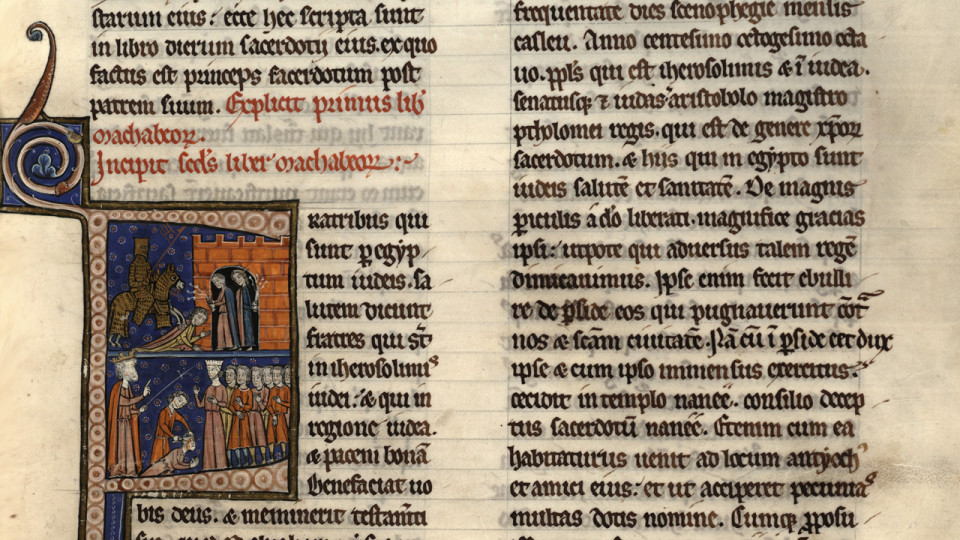 starum eius: ecce hec scripta sunt
in libro dierum sacerdotij eius. ex quo
factus est princeps sacerdotum post
patrem suum. Explicit primus lib̄
machabeoꝝ.
Incipit scđs liber machabeoꝝ:
ratribus qui
sunt ꝑ egyp
tum iudeis. sa
lutem dicunt
fratres qui st̄
in iherosolimis
iudei: ⁊ qui in
regione iudea.
⁊ pacem bonā
Benefaciat uo
bis deus. ⁊ meminerit testam̄ti
frequentate dies scenophegie mensis
casleu. Anno centesimo octogesimo octa
uo. ppl̄s qui est iherosolimis ⁊ ī iudea.
senatusqꝫ ⁊ iudas: aristobolo magistro
ptholomei regis. qui est de genere xp̄oꝝ
sacerdotum. ⁊ hiis qui in egypto sunt
iudeis salutē et sanitatē. De magnis
ꝑiculis a dō liberati. magnifice gracias
ipsi: utpote qui aduersus talem regē
dimicauimus. Ipse enim fecit ebulli
re de ꝑside eos qui pugnauerunt cōt̄
nos ⁊ sc̄am ciuitatē. Nā cū ī ꝑside eēt dux
ipse ⁊ cum ipso immensus exercitus:
cecidit in templo naneē. consilio decep
tus sacerdotū naneē. Etenim cum ea
habitaturus uenit ad locum antyochꝰ
et amici eius: et ut acciperet pecunias
multas dotis nomine. Cumqꝫ ꝓposu